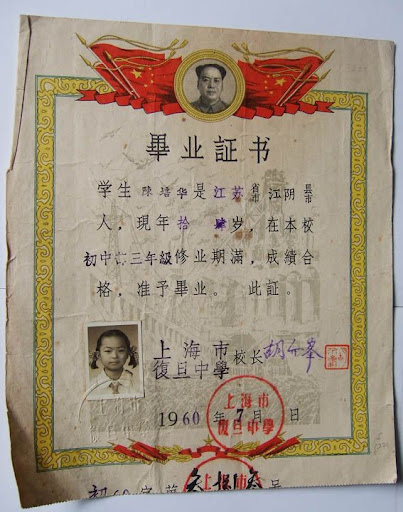 畢业証书
学生 陈培华是江苏省市江阴县市
人，現年拾肆岁，在本校
初中部三年級修业期滿，成績合
格，准予畢业。此証。
上海市
復旦中學 校长
1960年7月 日
上海市
復旦中學
上海市
初60字第 号